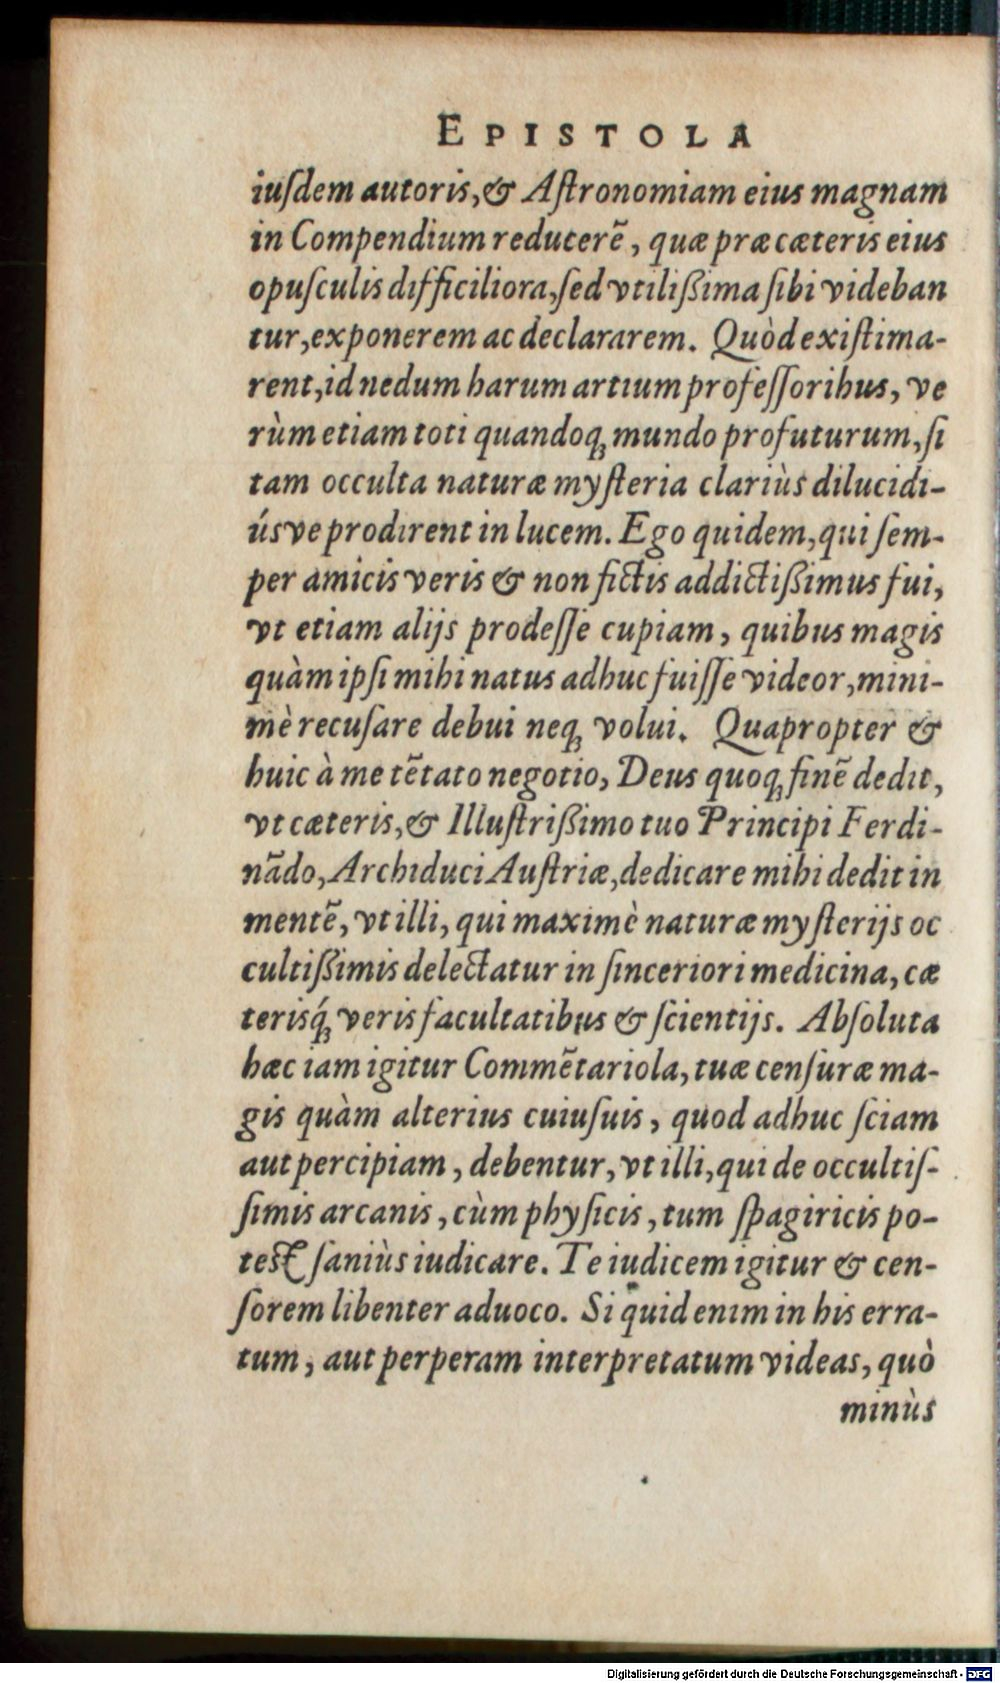 EPISTOLA
iuſdem autoris,& Aſtronomiam eius magnam
in Compendium reducerẽ, quæ præ cæteris eius
opuſculis difficiliora,ſed vtilißima ſibi videban
tur,exponerem ac declararem. Quòd exiſtima-
rent,id nedum harum artium profeſſoribus, ve
rùm etiam toti quandoq; mundo profuturum,ſi
tam occulta naturæ myſteria clariùs dilucidi-
úsve prodirent in lucem. Ego quidem,qui ſem-
per amicis veris & non fictis addictißimus fui,
vt etiam alijs prodeſſe cupiam, quibus magis
quàm ipſi mihi natus adhuc fuiſſe videor,mini-
mè recuſare debui neq; volui. Quapropter &
huic à me tẽtato negotio, Deus quoq; finẽ dedit,
vt cæteris,& Illuſtrißimo tuo Principi Ferdi-
nãdo, Archiduci Auſtriæ,dedicare mihi dedit in
mentẽ, vt illi, qui maximè naturæ myſterijs oc
cultißimis delectatur in ſinceriori medicina, cæ
terisq́; veris facultatibus & ſcientijs. Abſoluta
hæc iam igitur Commẽtariola, tuæ cenſuræ ma-
gis quàm alterius cuiuſuis, quod adhuc ſciam
aut percipiam, debentur, vt illi,qui de occultiſ-
ſimis arcanis, cùm phyſicis, tum ſpagiricis po-
test ſaniùs iudicare. Te iudicem igitur & cen-
ſorem libenter aduoco. Si quid enim in his erra-
tum, aut perperam interpretatum videas, quò
minùs
Digitalisierung gefördert durch die Deutsche Forschungsgemeinschaft - DFG